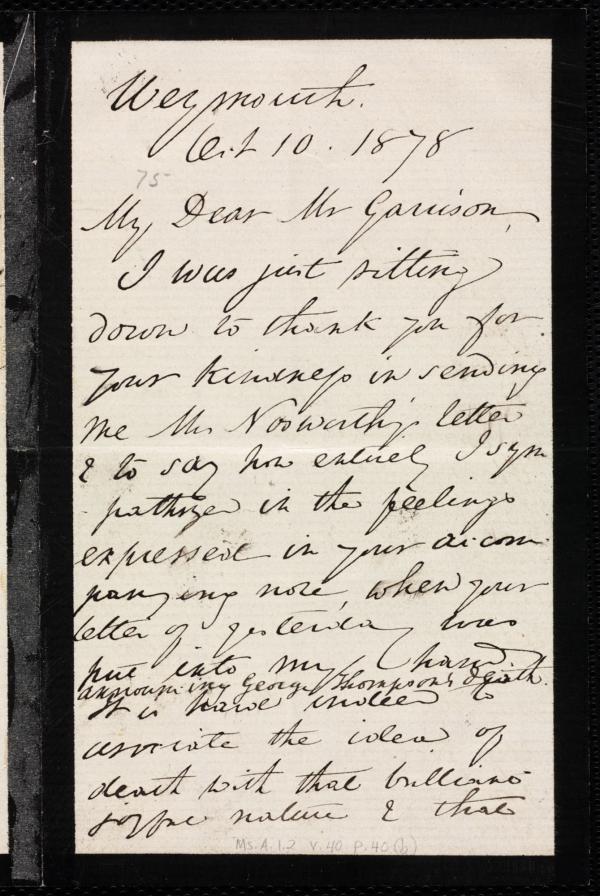 Weymouth.
Oct 10. 1878
75
My Dear Mr Garrison,
I was just sitting
down to thank you for
your kindness in sending
me Mrs Nosworthy's letter
& to say how entirely I sym
pathize in the feelings
expressed in your accom-
panying note, when your
letter of yesterday was
put into my hand.
announcing George Thompson's death.
It is hard indeed to
associate the idea of
death with that brilliant
joyful nature & that
Ms.A.1.2 v.40 p.40(b)